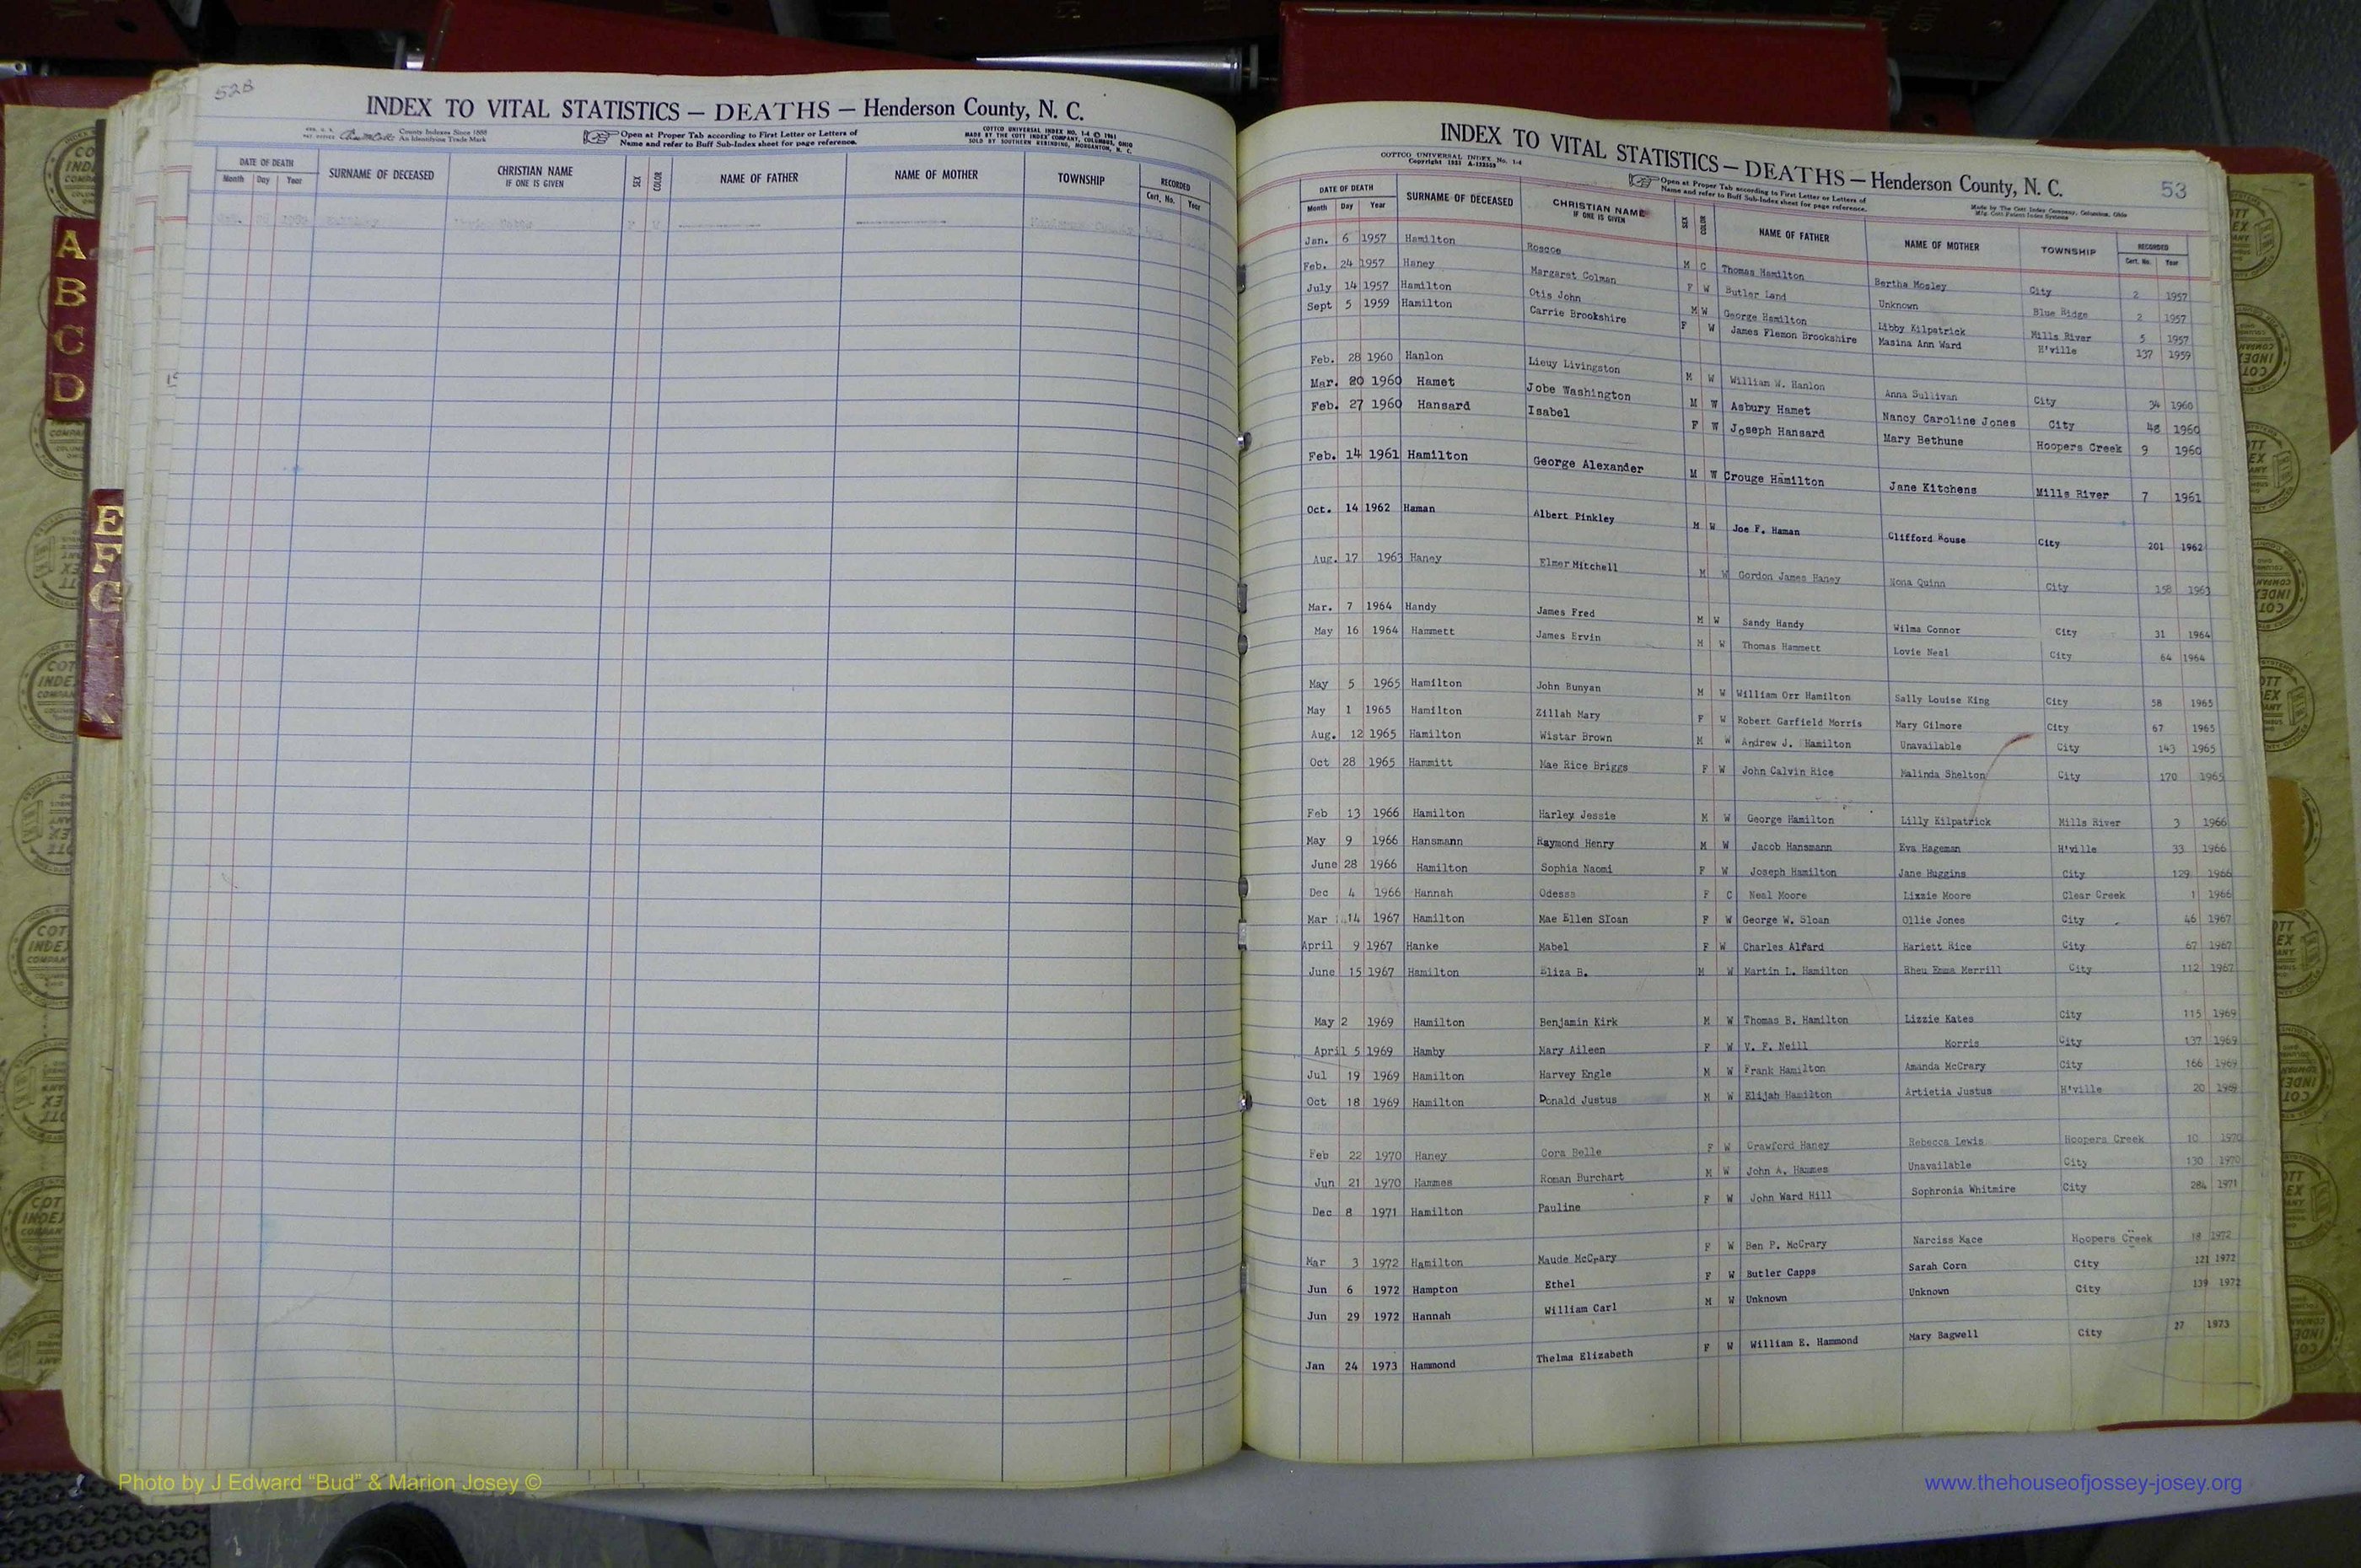 52B
INDEX TO VITAL STATISTICS — DEATHS — Henderson County, N. C.
County Indexes Since 1888
An Identifying Trade Mark
Open at Proper Tab according to First Letter or Letters of
Name and refer to Buff Sub-Index sheet for page reference.
COTTCO UNIVERSAL INDEX NO. 1-4 © 1961
MADE BY THE COTT INDEX COMPANY, COLUMBUS, OHIO
SOLD BY SOUTHERN REBINDING, MORGANTON, N. C.
DATE OF DEATH
Month Day Year
SURNAME OF DECEASED
CHRISTIAN NAME
IF ONE IS GIVEN
SEX
COLOR
NAME OF FATHER
NAME OF MOTHER
TOWNSHIP
RECORDED
Cert. No. Year
A
B
C
D
E
F
G
INDEX TO VITAL STATISTICS — DEATHS — Henderson County, N. C.
53
COTTCO UNIVERSAL INDEX No. 1-4
Open at Proper Tab according to First Letter or Letters of
Name and refer to Buff Sub-Index sheet for page reference.
Made by The Cott Index Company, Columbus, Ohio
DATE OF DEATH
Month Day Year
SURNAME OF DECEASED
CHRISTIAN NAME
IF ONE IS GIVEN
SEX
COLOR
NAME OF FATHER
NAME OF MOTHER
TOWNSHIP
RECORDED
Cert. No. Year
Jan. 6 1957 Hamilton Roscoe M C Thomas Hamilton Bertha Mosley City 2 1957
Feb. 24 1957 Haney Margaret Colman F W Butler Land Unknown Blue Ridge 2 1957
July 14 1957 Hamilton Otis John M W George Hamilton Libby Kilpatrick Mills River 5 1957
Sept 5 1959 Hamilton Carrie Brookshire F W James Flemon Brookshire Masina Ann Ward H'ville 137 1959
Feb. 28 1960 Hanlon Lieuy Livingston M W William W. Hanlon Anna Sullivan City 34 1960
Mar. 20 1960 Hamet Jobe Washington M W Asbury Hamet Nancy Caroline Jones City 48 1960
Feb. 27 1960 Hansard Isabel F W Joseph Hansard Mary Bethune Hoopers Creek 9 1960
Feb. 14 1961 Hamilton George Alexander M W Crouge Hamilton Jane Kitchens Mills River 7 1961
Oct. 14 1962 Haman Albert Pinkley M W Joe F. Haman Clifford Rouse City 201 1962
Aug. 17 1963 Haney Elmer Mitchell M W Gordon James Haney Nona Quinn City 158 1963
Mar. 7 1964 Handy James Fred M W Sandy Handy Wilma Connor City 31 1964
May 16 1964 Hammett James Ervin M W Thomas Hammett Lovie Neal City 64 1964
May 5 1965 Hamilton John Bunyan M W William Orr Hamilton Sally Louise King City 58 1965
May 1 1965 Hamilton Zillah Mary F W Robert Garfield Morris Mary Gilmore City 67 1965
Aug. 12 1965 Hamilton Wistar Brown M W Andrew J. Hamilton Unavailable City 143 1965
Oct 28 1965 Hammitt Mae Rice Briggs F W John Calvin Rice Malinda Shelton City 170 1965
Feb 13 1966 Hamilton Harley Jessie M W George Hamilton Lilly Kilpatrick Mills River 3 1966
May 9 1966 Hansmann Raymond Henry M W Jacob Hansmann Eva Hageman H'ville 33 1966
June 28 1966 Hamilton Sophia Naomi F W Joseph Hamilton Jane Huggins City 129 1966
Dec 4 1966 Hannah Odessa F C Neal Moore Lizzie Moore Clear Creek 1 1966
Mar 14 1967 Hamilton Mae Ellen Sloan F W George W. Sloan Ollie Jones City 46 1967
April 9 1967 Hanke Mabel F W Charles Alfard Hariett Rice City 67 1967
June 15 1967 Hamilton Eliza B. M W Martin L. Hamilton Rheu Emma Merrill City 112 1967
May 2 1969 Hamilton Benjamin Kirk M W Thomas B. Hamilton Lizzie Kates City 115 1969
April 5 1969 Hamby Mary Aileen F W V. F. Neill Morris City 137 1969
Jul 19 1969 Hamilton Harvey Engle M W Frank Hamilton Amanda McCrary City 166 1969
Oct 18 1969 Hamilton Donald Justus M W Elijah Hamilton Artietia Justus H'ville 20 1969
Feb 22 1970 Haney Cora Belle F W Crawford Haney Rebecca Lewis Hoopers Creek 10 1970
Jun 21 1970 Hammes Roman Burchart M W John A. Hammes Unavailable City 130 1970
Dec 8 1971 Hamilton Pauline F W John Ward Hill Sophronia Whitmire City 284 1971
Mar 3 1972 Hamilton Maude McCrary F W Ben P. McCrary Narciss Mace Hoopers Creek 18 1972
Jun 6 1972 Hampton Ethel F W Butler Capps Sarah Corn City 121 1972
Jun 29 1972 Hannah William Carl M W Unknown Unknown City 139 1972
Jan 24 1973 Hammond Thelma Elizabeth F W William E. Hammond Mary Bagwell City 27 1973
Photo by J Edward “Bud” & Marion Josey ©
www.thehouseofjossey-josey.org